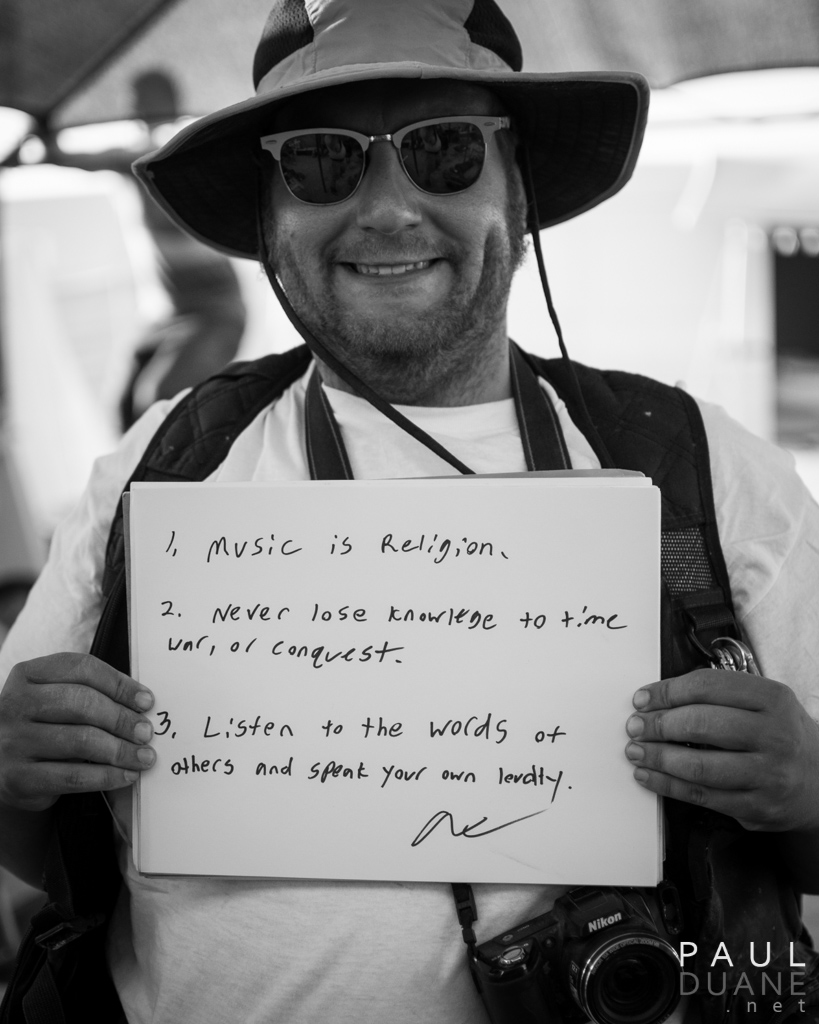 1, Music is Religion.
2. Never lose knowlege to time
war, or conquest.
3, Listen to the words of
others and speak your own
Nikon
PAUL
DUANE
.net